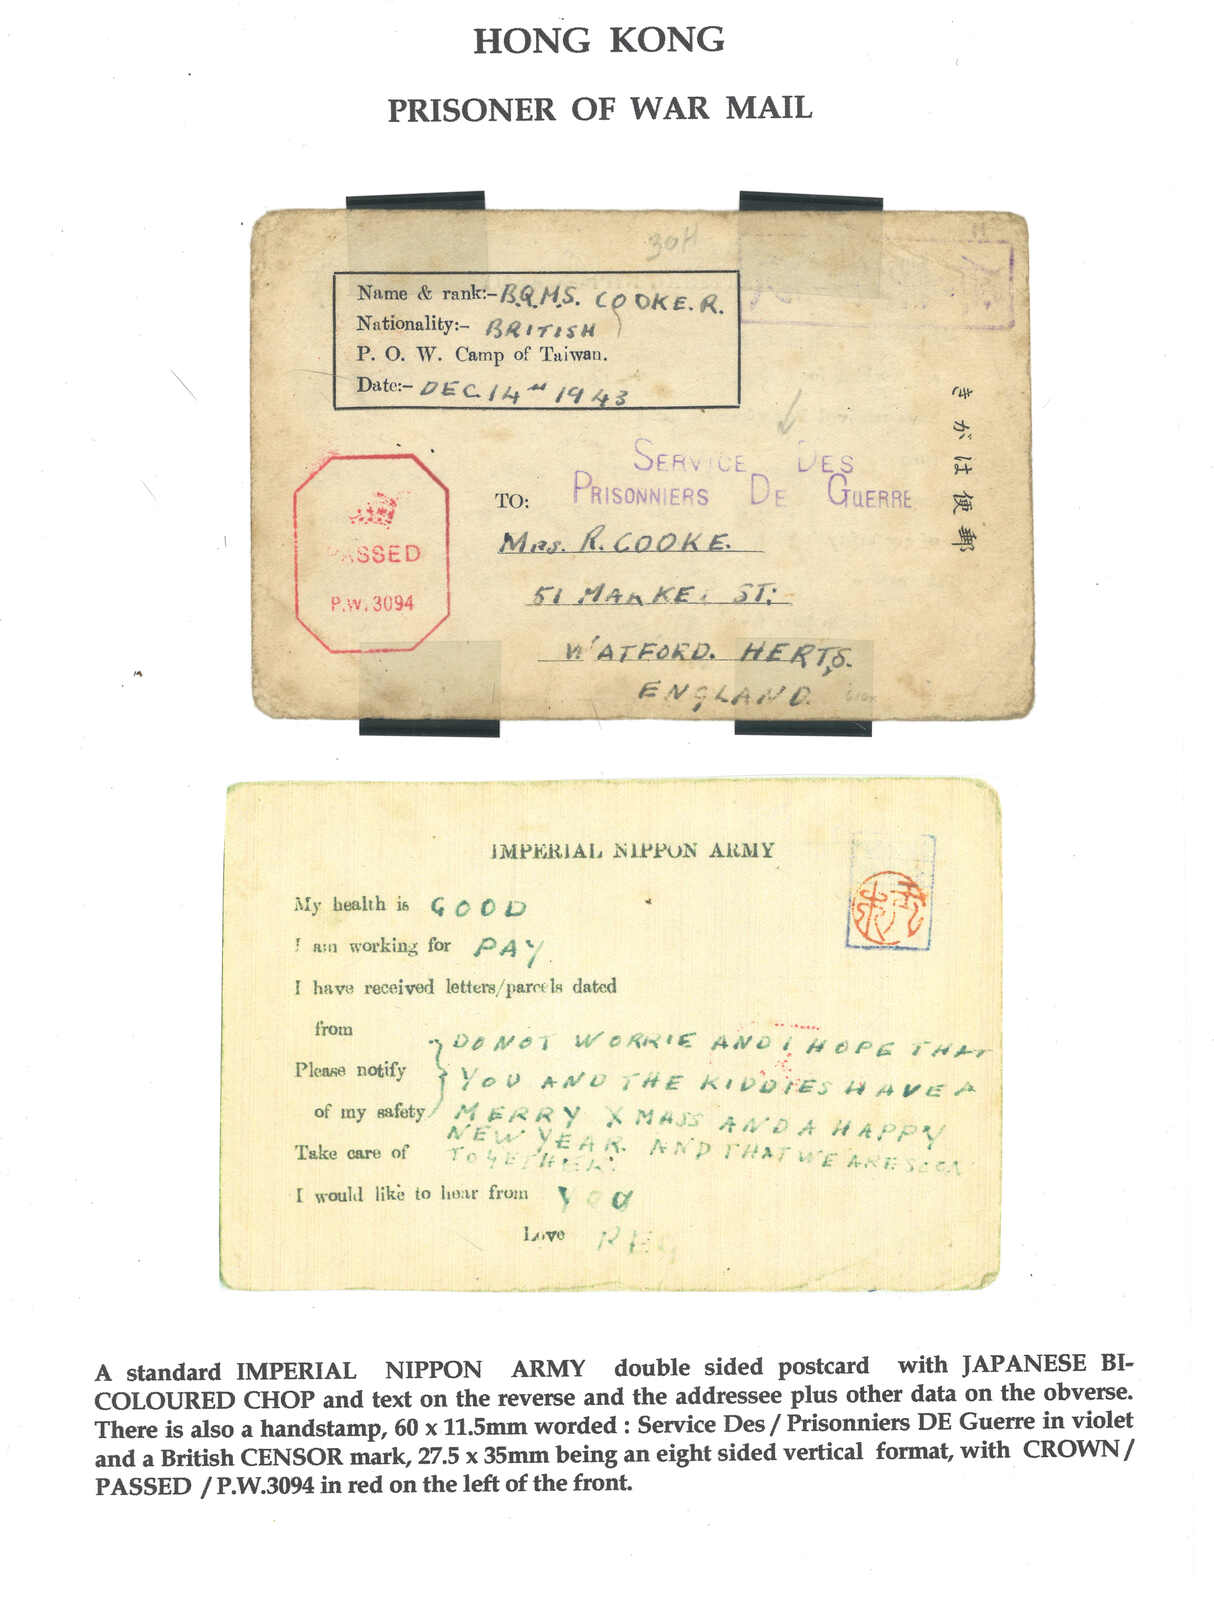 HONG KONG
PRISONER OF WAR MAIL
30H
Name & rank:- B.Q.M.S. COOKE. R.
Nationality:- BRITISH
P. O. W. Camp of Taiwan.
Date:- DEC. 14TH 1943
きがは便郵
SERVICE DES
PRISONNIERS DE GUERRE
PASSED
P.W. 3094
TO:
MRS. R. COOKE.
51 MARKET ST;
WATFORD. HERTS.
ENGLAND.
IMPERIAL NIPPON ARMY
My health is GOOD
I am working for PAY.
I have received letters/parcels dated
from
Please notify
of my safety
DO NOT WORRIE AND I HOPE THAT
YOU AND THE KIDDIES HAVE A
MERRY XMASS AND A HAPPY
NEW YEAR. AND THAT WE ARE SOON
TOGETHER.
Take care of
I would like to hear from YOU
Love REG
A standard IMPERIAL NIPPON ARMY double sided postcard with JAPANESE BI-
COLOURED CHOP and text on the reverse and the addressee plus other data on the obverse.
There is also a handstamp, 60 x 11.5mm worded : Service Des / Prisonniers DE Guerre in violet
and a British CENSOR mark, 27.5 x 35mm being an eight sided vertical format, with CROWN /
PASSED / P.W.3094 in red on the left of the front.